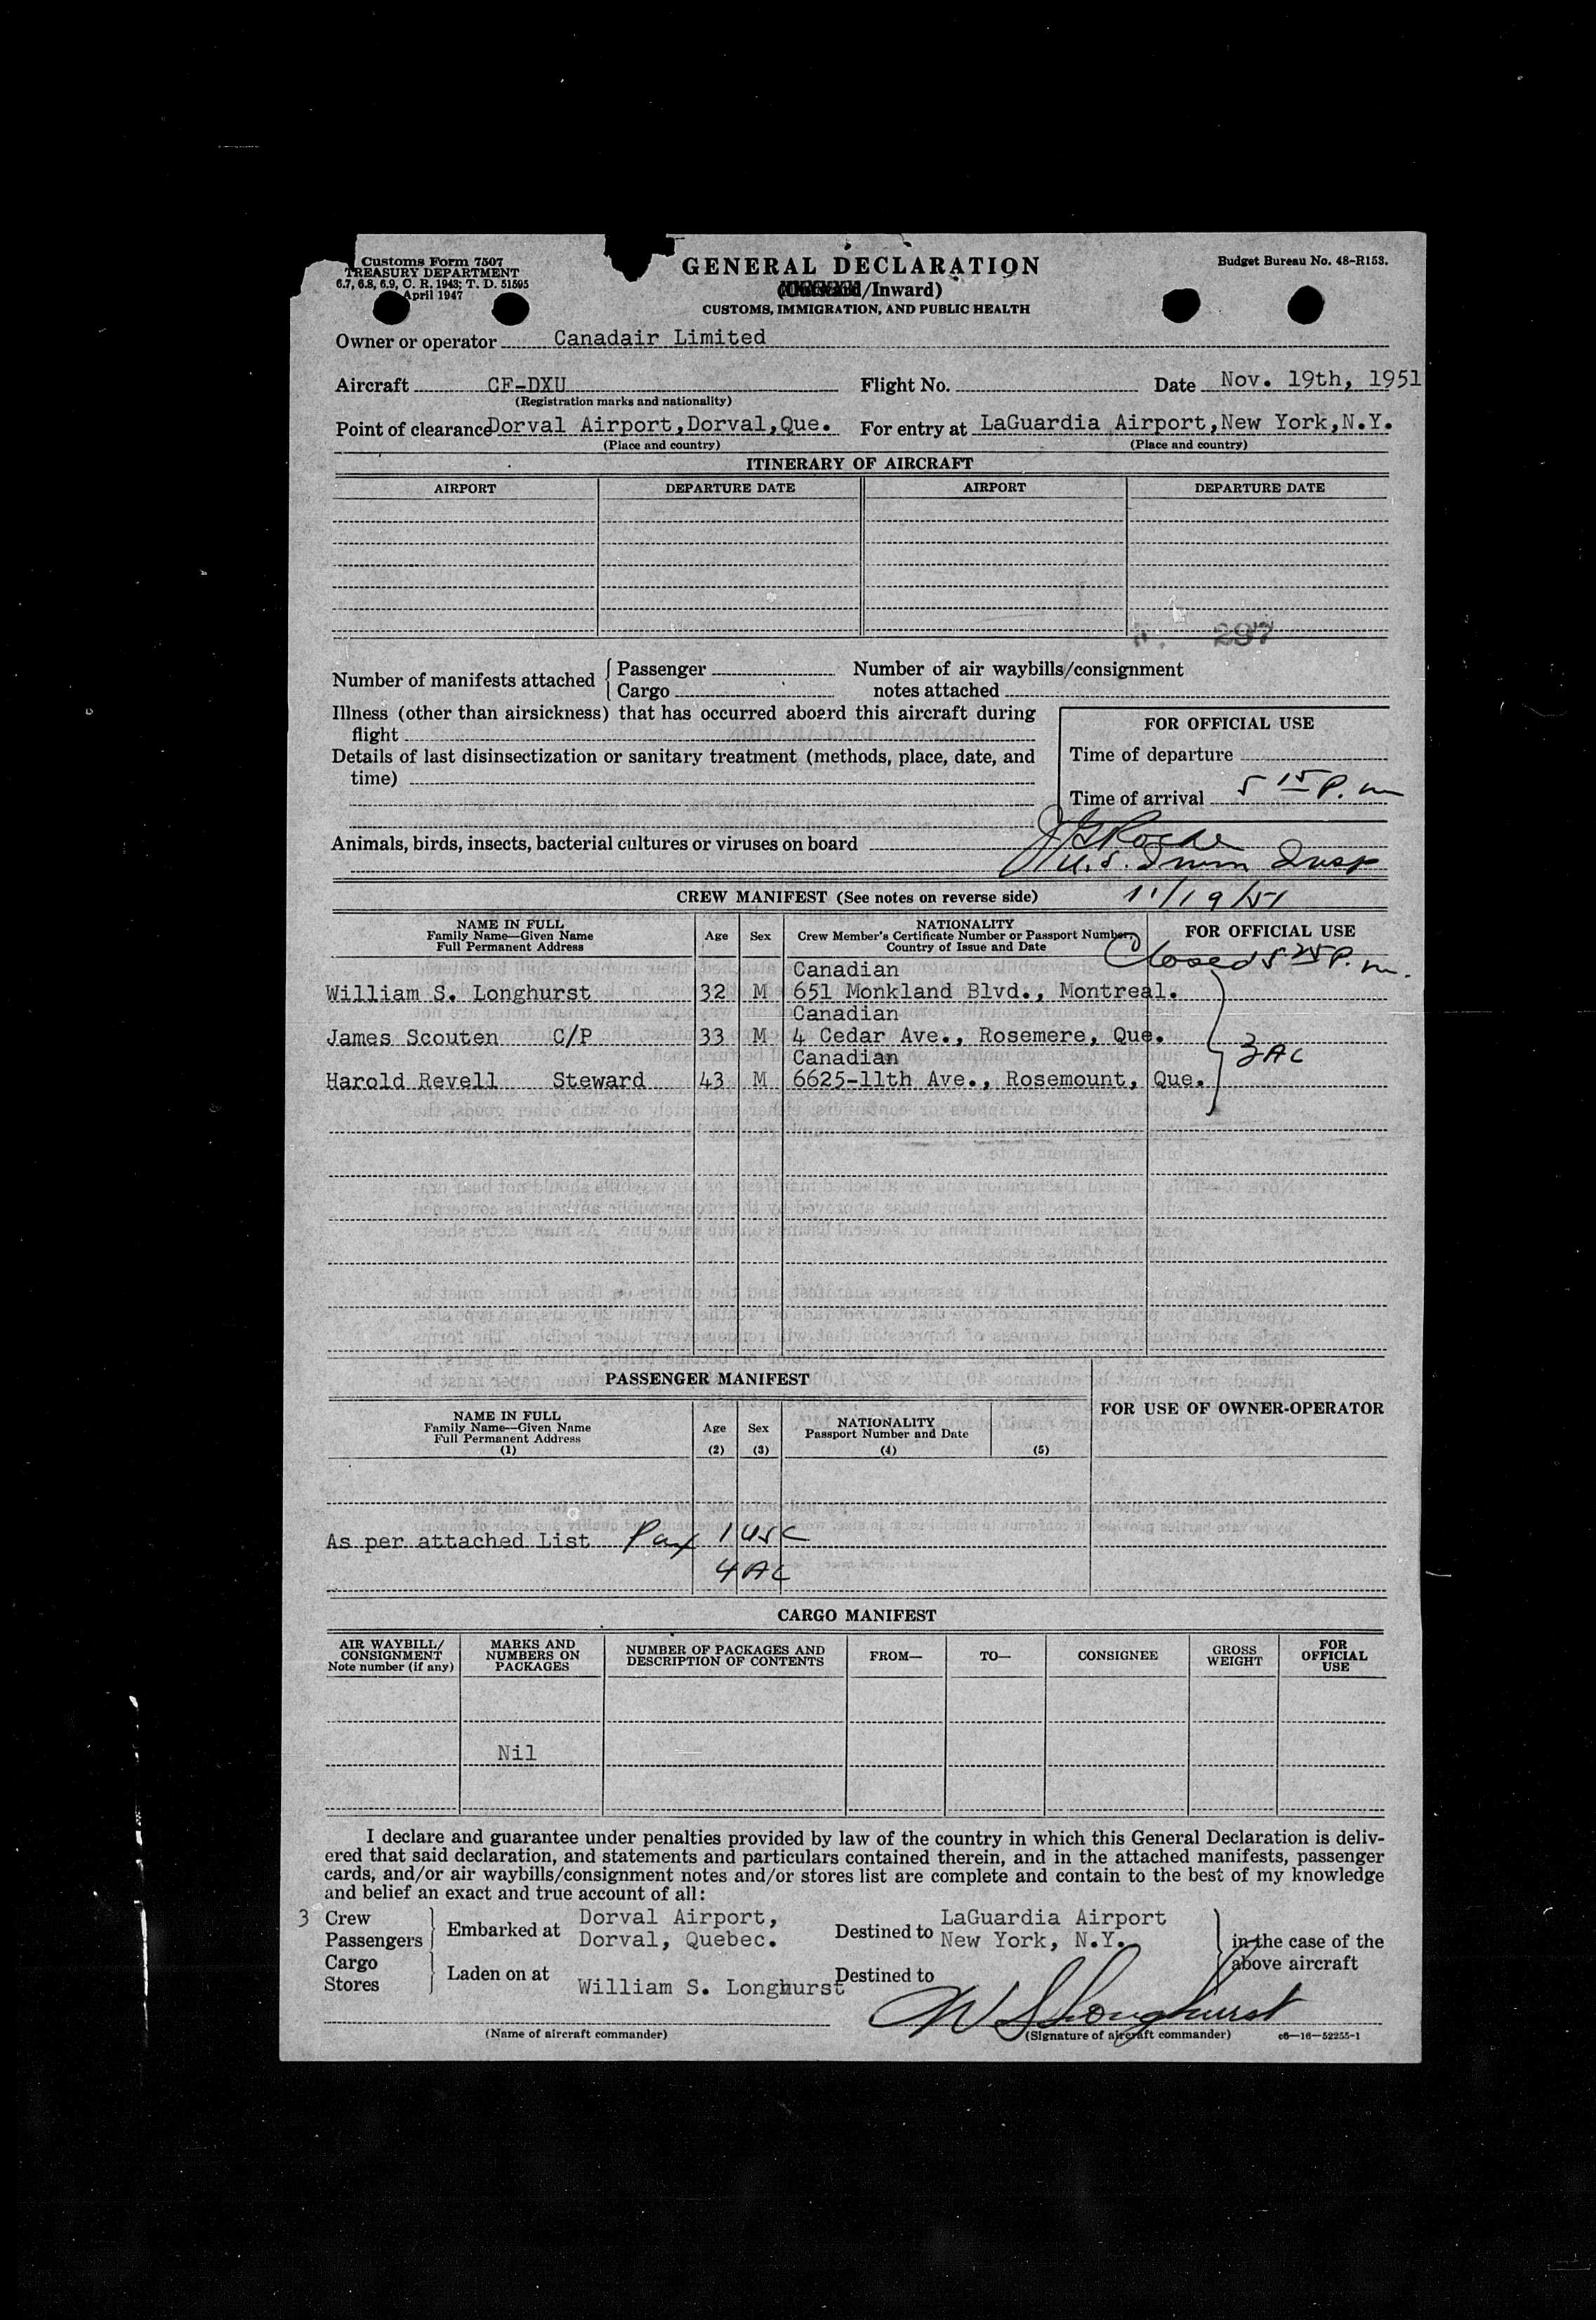 Customs Form 7507
TREASURY DEPARTMENT
6.7, 6.8, 6.9, C. R. 1943; T. D. 51595
April 1947
GENERAL DECLARATION
(Outward/Inward)
CUSTOMS, IMMIGRATION, AND PUBLIC HEALTH
Budget Bureau No. 48-R153.
Owner or operator Canadair Limited
Aircraft CF-DXU Flight No. Date Nov. 19th, 1951
(Registration marks and nationality)
Point of clearance Dorval Airport, Dorval, Que. For entry at LaGuardia Airport, New York, N.Y.
(Place and country) (Place and country)
ITINERARY OF AIRCRAFT
AIRPORT DEPARTURE DATE AIRPORT DEPARTURE DATE
297
Number of manifests attached { Passenger Number of air waybills/consignment
Cargo notes attached
Illness (other than airsickness) that has occurred aboard this aircraft during
flight
FOR OFFICIAL USE
Details of last disinsectization or sanitary treatment (methods, place, date, and
time)
Time of departure
Time of arrival 5 15 P. m
Animals, birds, insects, bacterial cultures or viruses on board
J G Roche
U.S. Imm Insp
CREW MANIFEST (See notes on reverse side) 11/19/51
NAME IN FULL
Family Name—Given Name
Full Permanent Address
Age Sex
NATIONALITY
Crew Member's Certificate Number or Passport Number,
Country of Issue and Date
FOR OFFICIAL USE
Closed 5 25 P. m.
Canadian
William S. Longhurst 32 M 651 Monkland Blvd., Montreal.
Canadian
James Scouten C/P 33 M 4 Cedar Ave., Rosemere, Que.
3 AC
Canadian
Harold Revell Steward 43 M 6625-11th Ave., Rosemount, Que.
PASSENGER MANIFEST
FOR USE OF OWNER-OPERATOR
NAME IN FULL
Family Name—Given Name
Full Permanent Address
(1)
Age
(2)
Sex
(3)
NATIONALITY
Passport Number and Date
(4) (5)
As per attached List Pax 1 USC
4 AC
CARGO MANIFEST
AIR WAYBILL/
CONSIGNMENT
Note number (if any)
MARKS AND
NUMBERS ON
PACKAGES
NUMBER OF PACKAGES AND
DESCRIPTION OF CONTENTS
FROM— TO— CONSIGNEE
GROSS
WEIGHT
FOR
OFFICIAL
USE
Nil
I declare and guarantee under penalties provided by law of the country in which this General Declaration is deliv-
ered that said declaration, and statements and particulars contained therein, and in the attached manifests, passenger
cards, and/or air waybills/consignment notes and/or stores list are complete and contain to the best of my knowledge
and belief an exact and true account of all:
3 Crew
Passengers } Embarked at Dorval Airport,
Dorval, Quebec.
Destined to LaGuardia Airport
New York, N.Y.
in the case of the
above aircraft
Cargo
Stores } Laden on at Destined to
William S. Longhurst W S Longhurst
(Name of aircraft commander) (Signature of aircraft commander) c6—16—52255-1